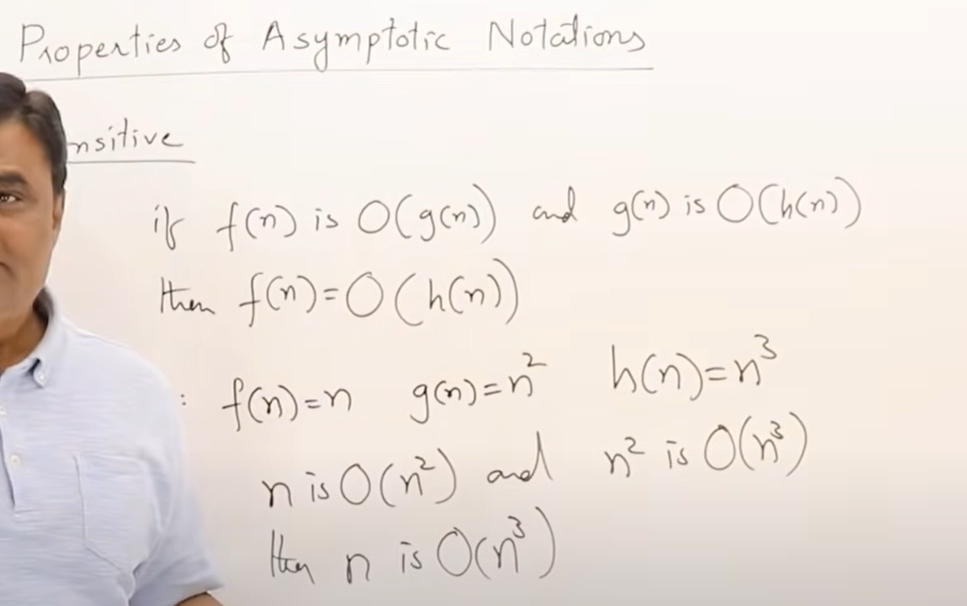 Properties of Asymptotic Notations
nsitive
if f(n) is O(g(n)) and g(n) is O(h(n))
then f(n)=O(h(n))
: f(n)=n g(n)=n² h(n)=n³
n is O(n²) and n² is O(n³)
then n is O(n³)